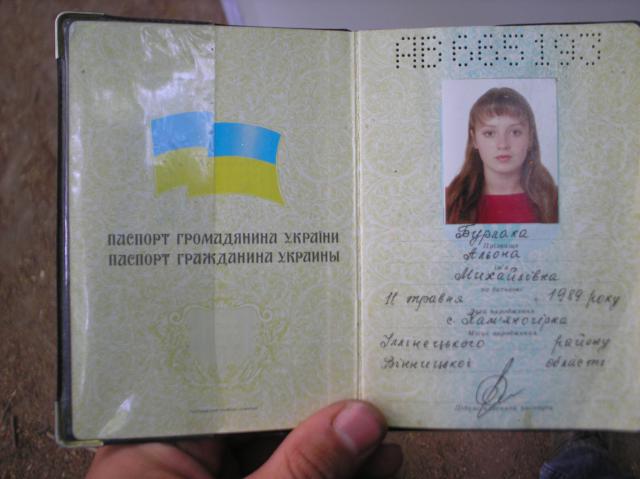 ПАСПОРТ ГРОМАДЯНИНА УКРАЇНИ
ПАСПОРТ ГРАЖДАНИНА УКРАИНЫ
АВ 665193
Бурлака
Прізвище
Альона
ім'я
Михайлівна
по батькові
11 травня 1989 року
дата народження
с. Кам'яногірка
Місце народження
Іллінецького району
Вінницької області